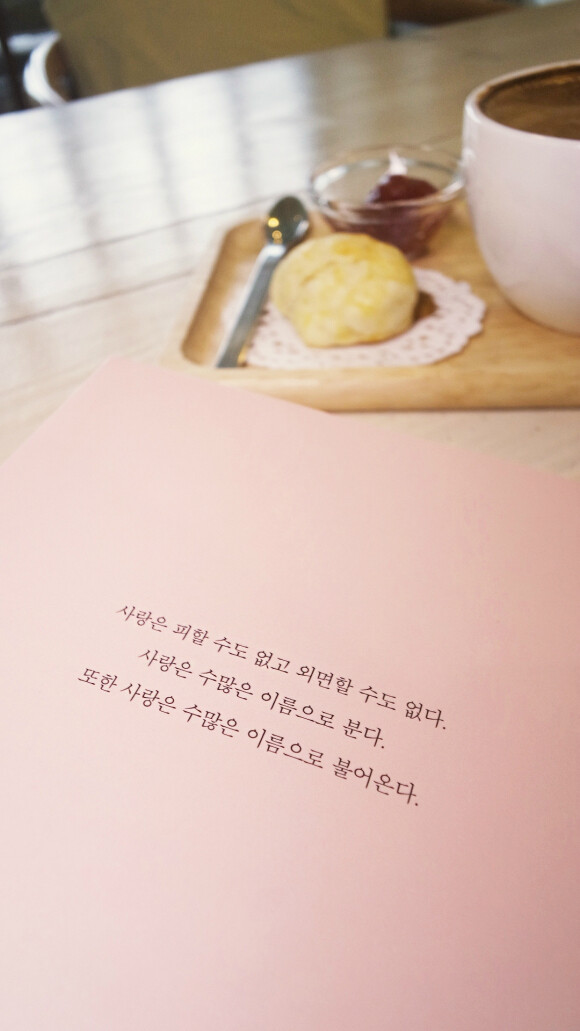 사랑은 피할 수도 없고 외면할 수도 없다.
사랑은 수많은 이름으로 분다.
또한 사랑은 수많은 이름으로 불어온다.